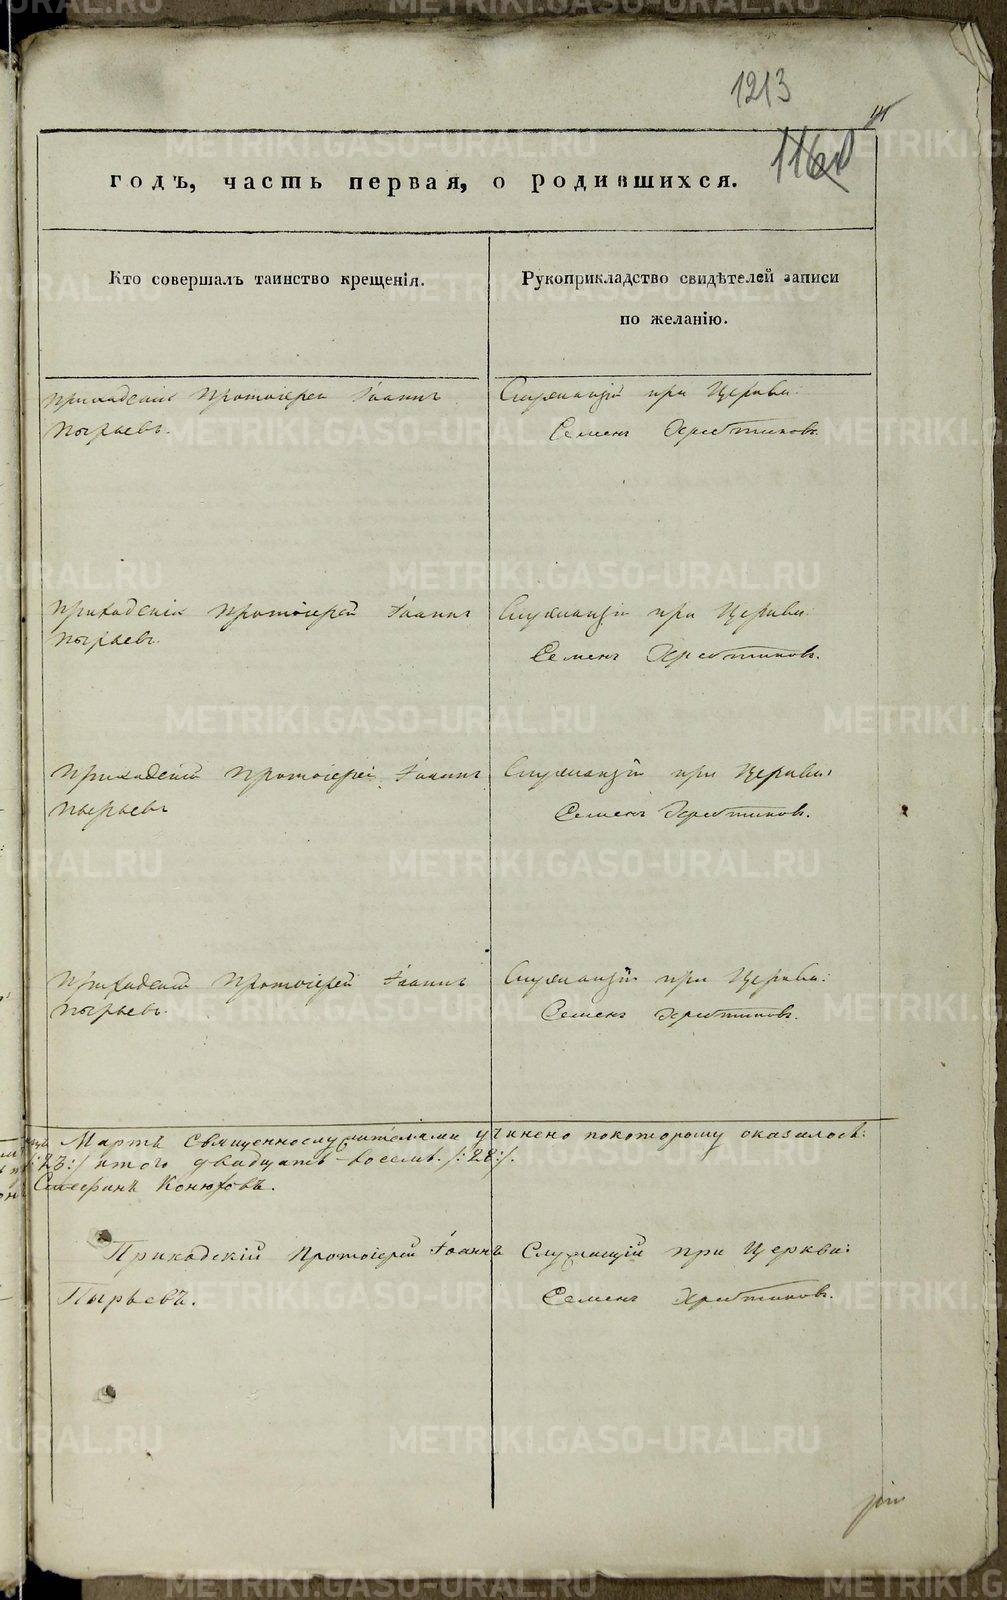 1213
годъ, часть первая, о родившихся.
Кто совершалъ таинство крещенія.
Рукоприкладство свидѣтелей записи
по желанію.
Приходскій Протоіерей Іоаннъ
Пырьевъ.
Служащій при Церкви:
Семенъ Хребтиковъ.
Приходскій Протоіерей Іоаннъ
Пырьевъ.
Служащій при Церкви:
Семенъ Хребтиковъ.
Приходскій Протоіерей Іоаннъ
Пырьевъ
Служащій при Церкви:
Семенъ Хребтиковъ.
Приходскій Протоіерей Іоаннъ
Пырьевъ.
Служащій при Церкви:
Семенъ Хребтиковъ.
Мартъ священнослужителями учинено покоторому оказалось:
/:23:/ итого двадцать восемь. /:28:/.
Стефанъ Конюховъ.
Приходскій Протоіерей Іоаннъ
Пырьевъ.
Служащій при Церкви:
Семенъ Хребтиковъ.
METRIKI.GASO-URAL.RU